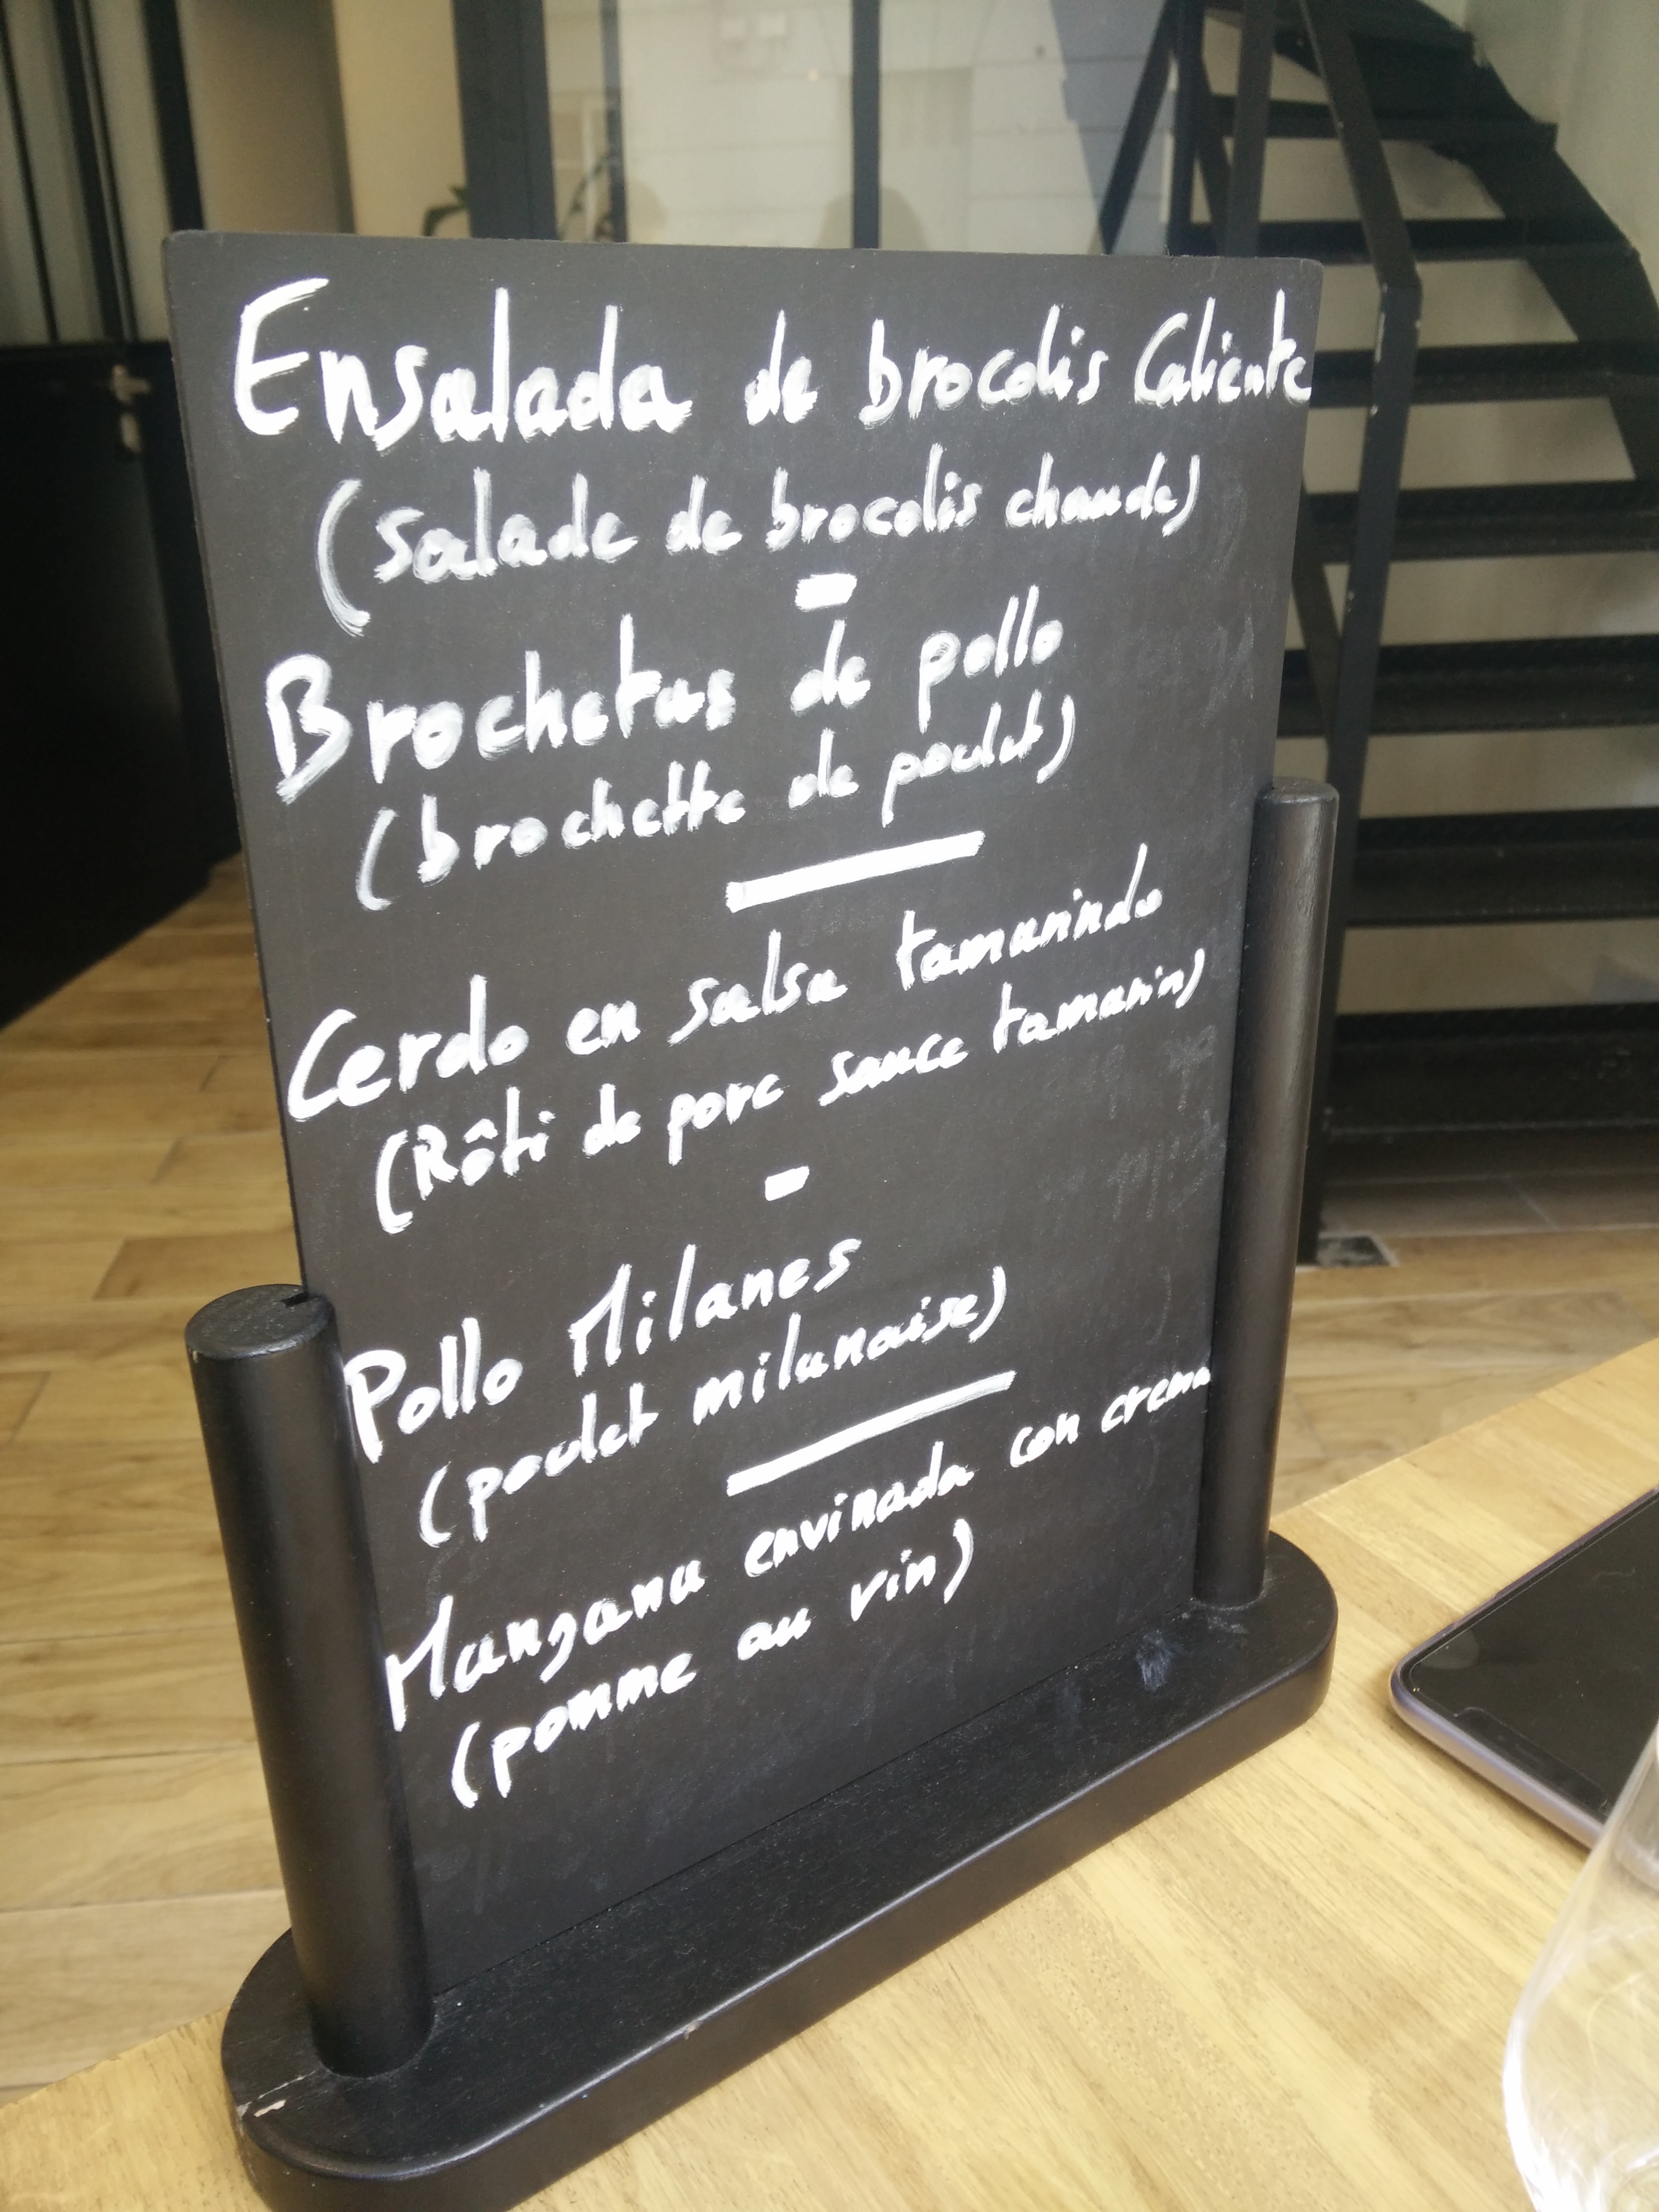 Ensalada de brocolis Caliente
(salade de brocolis chaude)
-
Brochetas de pollo
(brochette de poulet)
Cerdo en salsa tamarindo
(Rôti de porc sauce tamarin)
-
Pollo Milanes
(poulet milanaise)
Manzana envinada con crema
(pomme au vin)